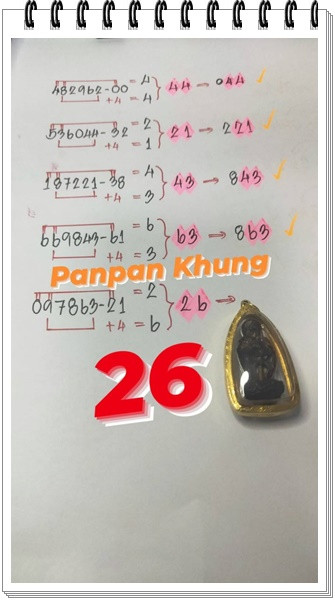 482962-00 = 4
+4 = 4 } 44 → 044 ✓
536044-32 = 2
+4 = 1 } 21 → 221 ✓
187221-38 = 4
+4 = 3 } 43 → 843 ✓
669843-61 = 6
+4 = 3 } 63 → 863 ✓
Panpan Khung
097863-21 = 2
+4 = 6 } 26 →
26